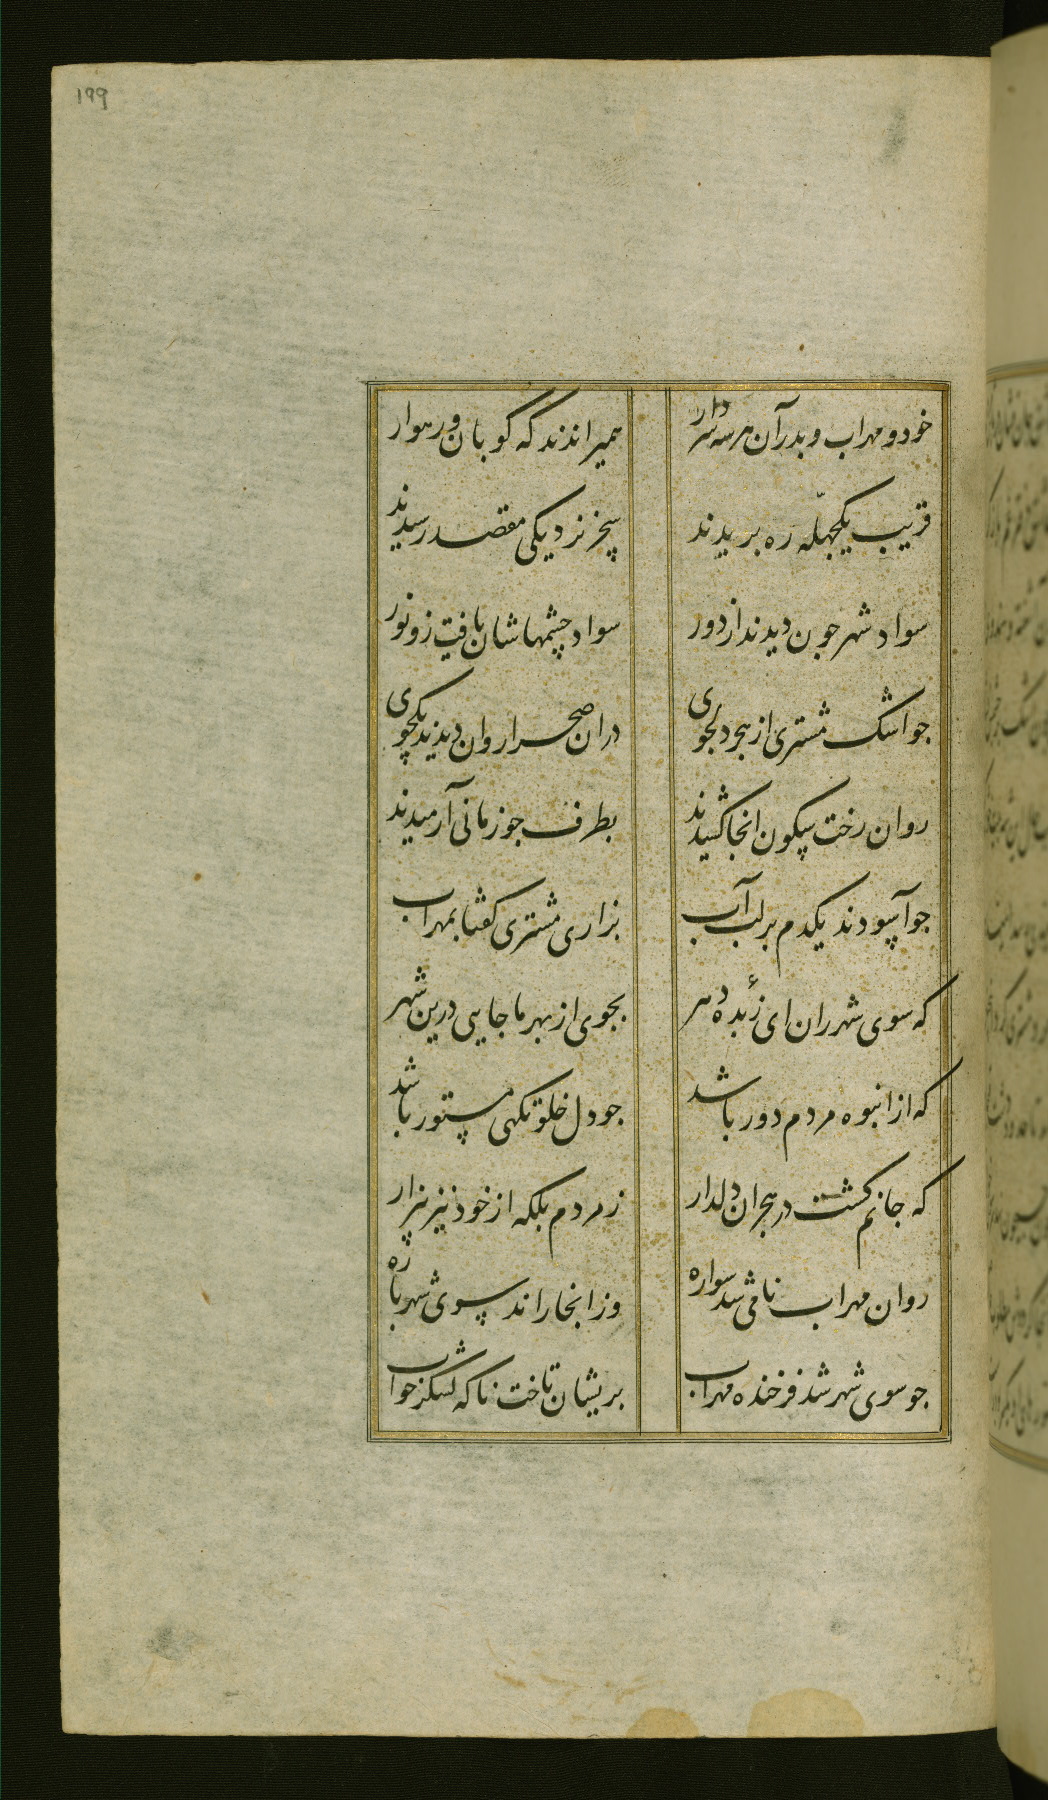 ۱۹۹
خود و مهراب و بدر آن هر سه سردار
همیراندند که کوبان و رهوار
قریب یکچهله ره بریدند
سحر نزدیکی مقصد رسیدند
سواد شهر جون دیدند از دور
سواد چشمهاشان یافت زو نور
جو اشک مشتری از هجر دلجوی
دران صحرا روان دیدند یکجوی
روان رخت سکون انجا کشیدند
بطرف جو زمانی آرمیدند
جو آسودند یکدم بر لب آب
بزاری مشتری کفتا بمهراب
که سوی شهر ران ای زبدهٔ دهر
بجوی از بهر ما جایی درین شهر
که از انبوه مردم دور باشد
جو دل خلوتکهی مستور باشد
که جانم کشت در هجران دلدار
ز مردم بلکه از خود نیز بیزار
روان مهراب نامی شد سواره
وز انجا راند سوی شهر باره
جو سوی شهر شد فرخنده مهراب
بریشان تاخت ناکه لشکر خواب